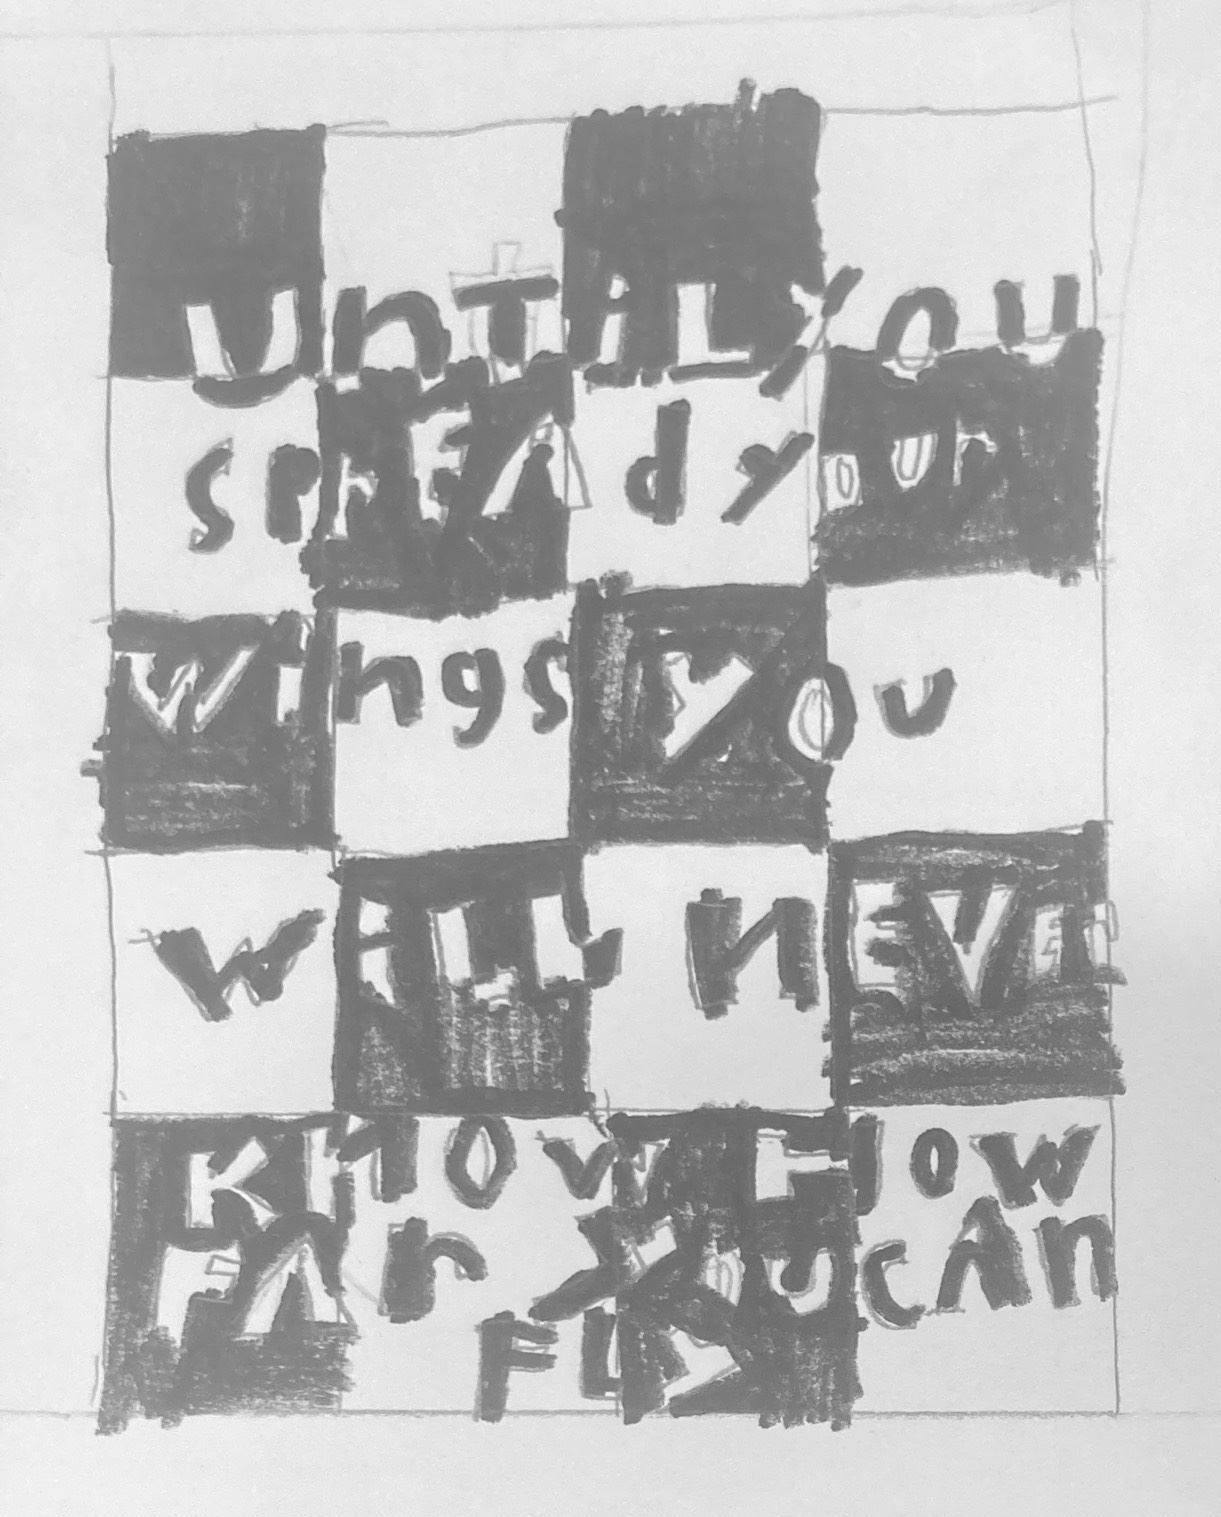 UnTiL YOU
SprEAd yOUr
Wings yOu
WiLL nEVEr
KnOW HOW
FAr YOU CAn
FLY